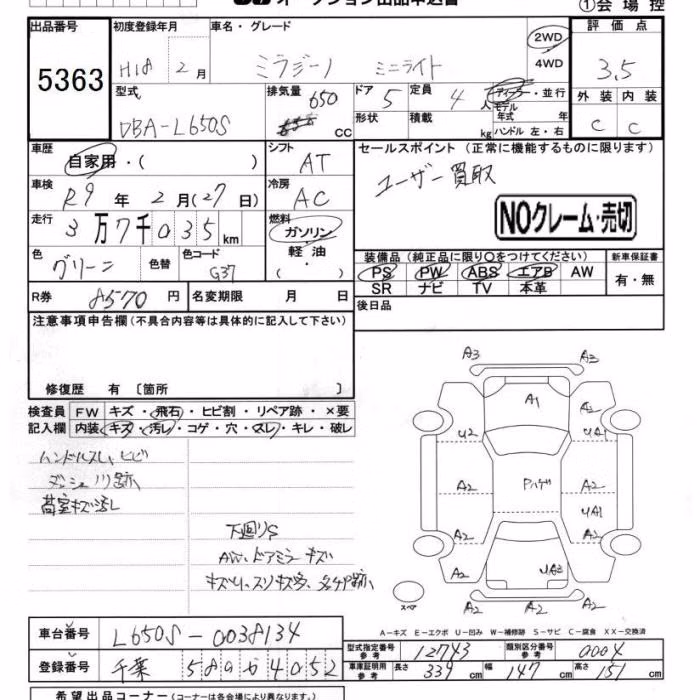 オークション出品申込書
①会 場 控
出品番号 初度登録年月 車名・グレード 評 価 点
5363 H18 2 月 ミラジーノ ミニライト 2WD 4WD 3.5
型式 排気量 ドア 定員 ディーラー・並行 外 装 内 装
DBA-L650S 650 CC 5 4 人 モデル年式 年 C C
形状 積載 kg ハンドル 左・右
車歴 自家用・( ) シフト AT セールスポイント(正常に機能するものに限ります)
車検 R9 年 2 月(27 日) 冷房 AC ユーザー買取
走行 3 万 7 千 0 3 5 km 燃料 ガソリン・軽 油・( ) NOクレーム・売切
色 グリーン 色替 色コード G37
装備品(純正品に限り○をつけてください) 新車保証書
PS PW ABS エアB AW 有・無
SR ナビ TV 本革
R券 8570 円 名変期限 月 日 後日品
注意事項申告欄(不具合内容等は具体的に記入して下さい)
修復歴 有 〔箇所
検査員 FW キズ・飛石・ヒビ割・リペア跡・×要
記入欄 内装 キズ・汚レ・コゲ・穴・スレ・キレ・破レ
ハンドルスレ、ヒビ
ダッシュ ノリ跡
荷室キズ汚レ
下廻りS
AW、ドアミラーキズ
A3 A3
A1 A2
U2 UA1
A2 Pハゲ A2
UA1
A2 A2
UA2
スペア
A-キズ E-エクボ U-凹み W-補修跡 S-サビ C-腐食 XX-交換済
車台番号 L650S-0038134
型式指定番号 参考 12743 類別区分番号 参考 0004
登録番号 千葉 5 8 0 4 0 5 2
車庫証明用 参考 長さ 339 cm 幅 147 cm 高さ 151 cm
希望出品コーナー(各会場により異なります。)